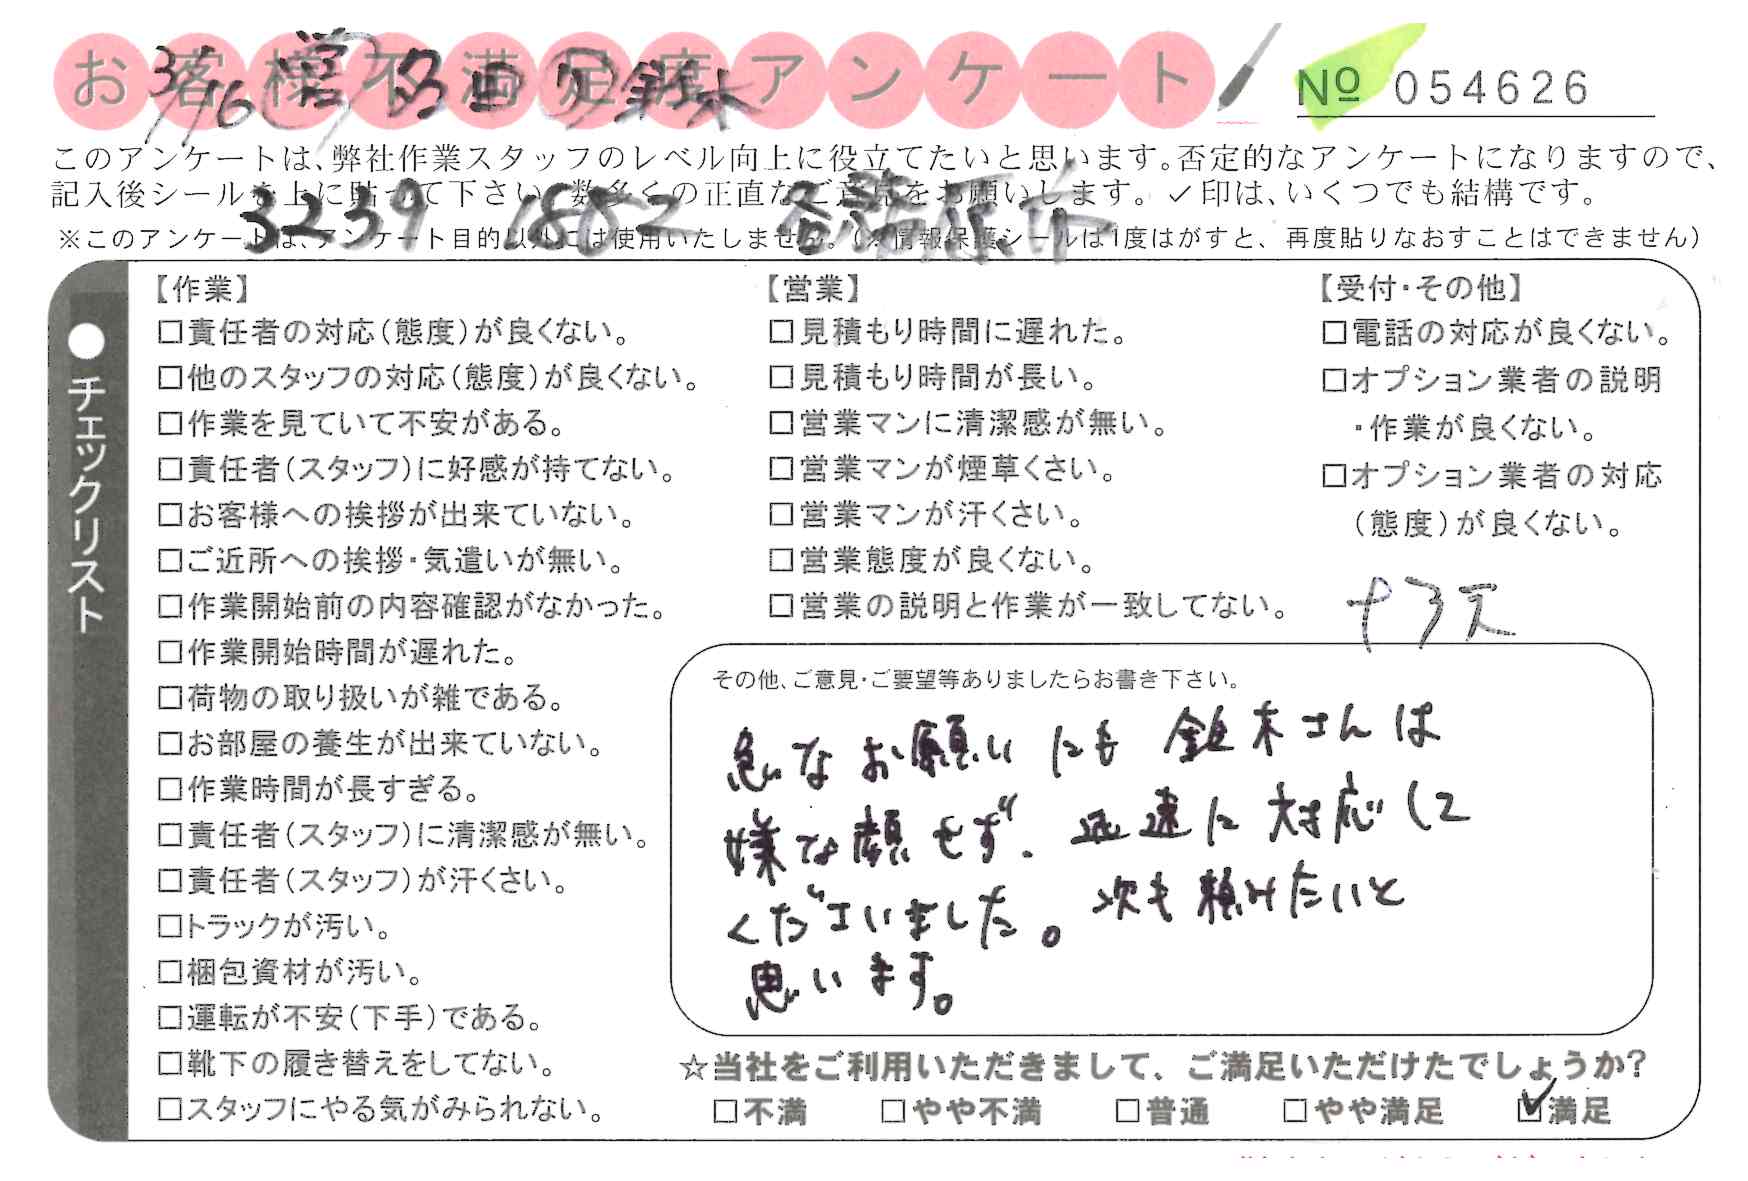 お客様不満足度アンケート
3/16
鈴木
№ 054626
このアンケートは、弊社作業スタッフのレベル向上に役立てたいと思います。否定的なアンケートになりますので、
記入後シールを上に貼って下さい。数多くの正直なご意見をお願いします。✓印は、いくつでも結構です。
3239 1882
※このアンケートは、アンケート目的以外には使用いたしません。(※情報保護シールは1度はがすと、再度貼りなおすことはできません)
●チェックリスト
【作業】
□責任者の対応(態度)が良くない。
□他のスタッフの対応(態度)が良くない。
□作業を見ていて不安がある。
□責任者(スタッフ)に好感が持てない。
□お客様への挨拶が出来ていない。
□ご近所への挨拶・気遣いが無い。
□作業開始前の内容確認がなかった。
□作業開始時間が遅れた。
□荷物の取り扱いが雑である。
□お部屋の養生が出来ていない。
□作業時間が長すぎる。
□責任者(スタッフ)に清潔感が無い。
□責任者(スタッフ)が汗くさい。
□トラックが汚い。
□梱包資材が汚い。
□運転が不安(下手)である。
□靴下の履き替えをしてない。
□スタッフにやる気がみられない。
【営業】
□見積もり時間に遅れた。
□見積もり時間が長い。
□営業マンに清潔感が無い。
□営業マンが煙草くさい。
□営業マンが汗くさい。
□営業態度が良くない。
□営業の説明と作業が一致してない。
【受付・その他】
□電話の対応が良くない。
□オプション業者の説明
・作業が良くない。
□オプション業者の対応
(態度)が良くない。
その他、ご意見・ご要望等ありましたらお書き下さい。
急なお願いにも 鈴木さんは
嫌な顔せず、迅速に対応して
くださいました。次も頼みたいと
思います。
☆当社をご利用いただきまして、ご満足いただけたでしょうか?
□不満 □やや不満 □普通 □やや満足 ☑満足